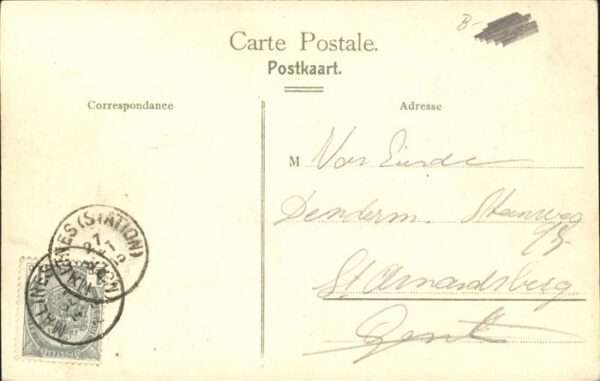 B-
Carte Postale.
Postkaart.
Correspondance
Adresse
M Van Eerde
Denderm. Steenweg
95
St Amandsberg
Gent
(STATION)
MALINES